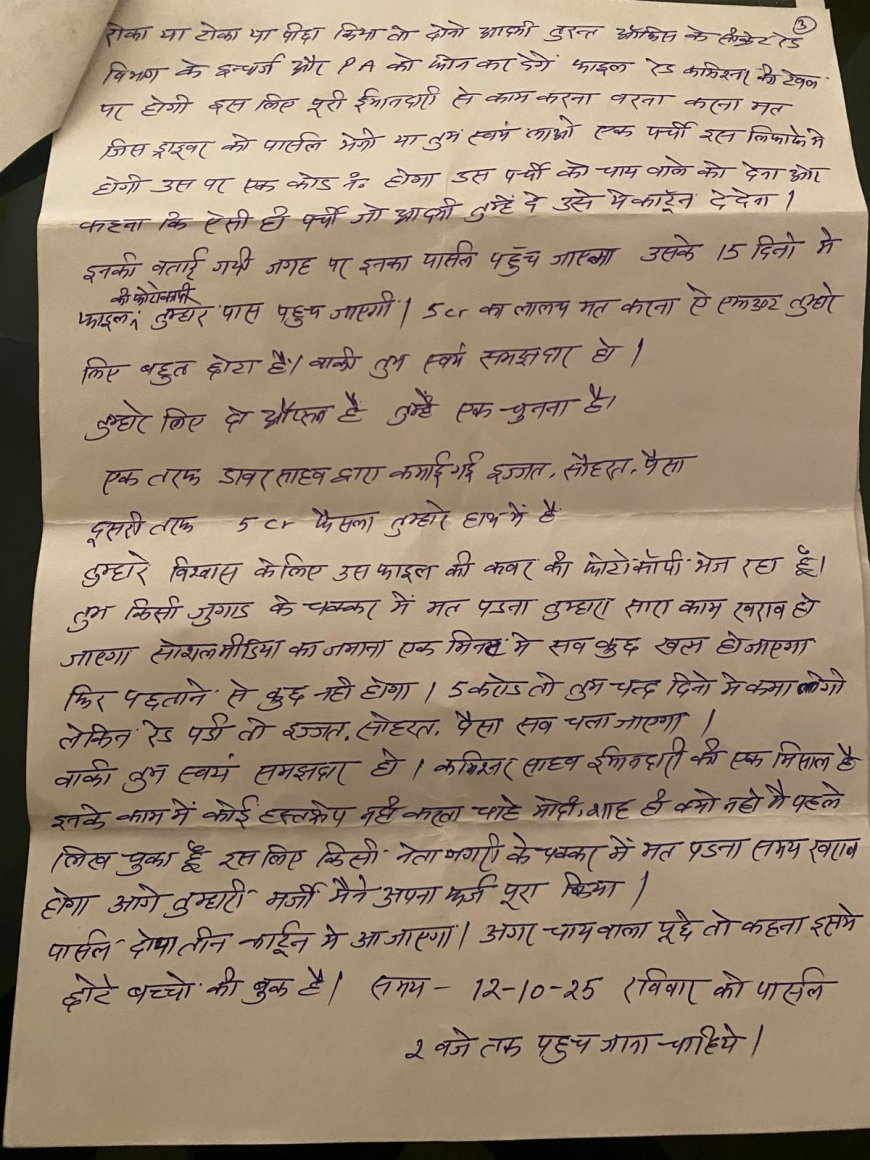 ③
रोका या टोका या पीछा किया तो दोनो आदमी तुरन्त ऑफिस के सीक्रेट रेड
विभाग के इन्चार्ज और PA को फोन कर देगें फाइल रेड कमिश्नर की टेबल
पर होगी इस लिए पूरी ईमानदारी से काम करना वरना करना मत
जिस ड्राइवर को पार्सल भेजो या तुम स्वयं लाओ एक पर्ची इस लिफाफे मे
होगी उस पर एक कोड नं० होगा उस पर्ची को चाय वाले को देना और
कहना कि ऐसी ही पर्ची जो आदमी तुम्हें दे उसे ये कार्टून दे देना।
इनकी बताई गयी जगह पर इनका पार्सल पहुँच जाएगा उसके 15 दिनो मे
की फोटोकापी
फाइल, तुम्हारे पास पहुच जाएगी। 5 cr का लालच मत करना ऐ एमाउंट तुम्हारे
लिए बहुत छोटा है। बाकी तुम स्वयं समझदार हो।
तुम्हारे लिए दो ऑप्सन है तुम्हे एक चुनना है।
एक तरफ डावर साहब द्वारा कमाई गई इज्जत, सौहरत, पैसा
दूसरी तरफ 5 cr फैसला तुम्हारे हाथ में है
तुम्हारे विश्वास के लिए उस फाइल की कवर की फोटोकॉपी भेज रहा हूँ।
तुम किसी जुगाड के चक्कर में मत पडना तुम्हारा सारा काम खराब हो
जाएगा सोशल मीडिया का जमाना एक मिनट मे सब कुछ खत्म हो जाएगा
फिर पछताने से कुछ नही होगा। 5 करोड तो तुम चन्द दिनो मे कमा लोगो
लेकिन रेड पडी तो इज्जत, सोहरत, पैसा सब चला जाएगा।
वाकी तुम स्वयं समझदार हो। कमिश्नर साहब ईमानदारी की एक मिसाल है
इनके काम में कोई हस्तक्षेप नही करता चाहे मोदी, शाह ही क्यो नहो मै पहले
लिख चुका हूँ इस लिए किसी नेता नगरी के चक्कर में मत पडना समय खराब
होगा आगे तुम्हारी मर्जी मैने अपना फर्ज पूरा किया।
पार्सल दो या तीन कार्टून मे आ जाएगा। अगर चाय वाला पूछे तो कहना इसमे
छोटे बच्चो की बुक है। समय - 12-10-25 रविवार को पार्सल
2 बजे तक पहुच जाना चाहिये।